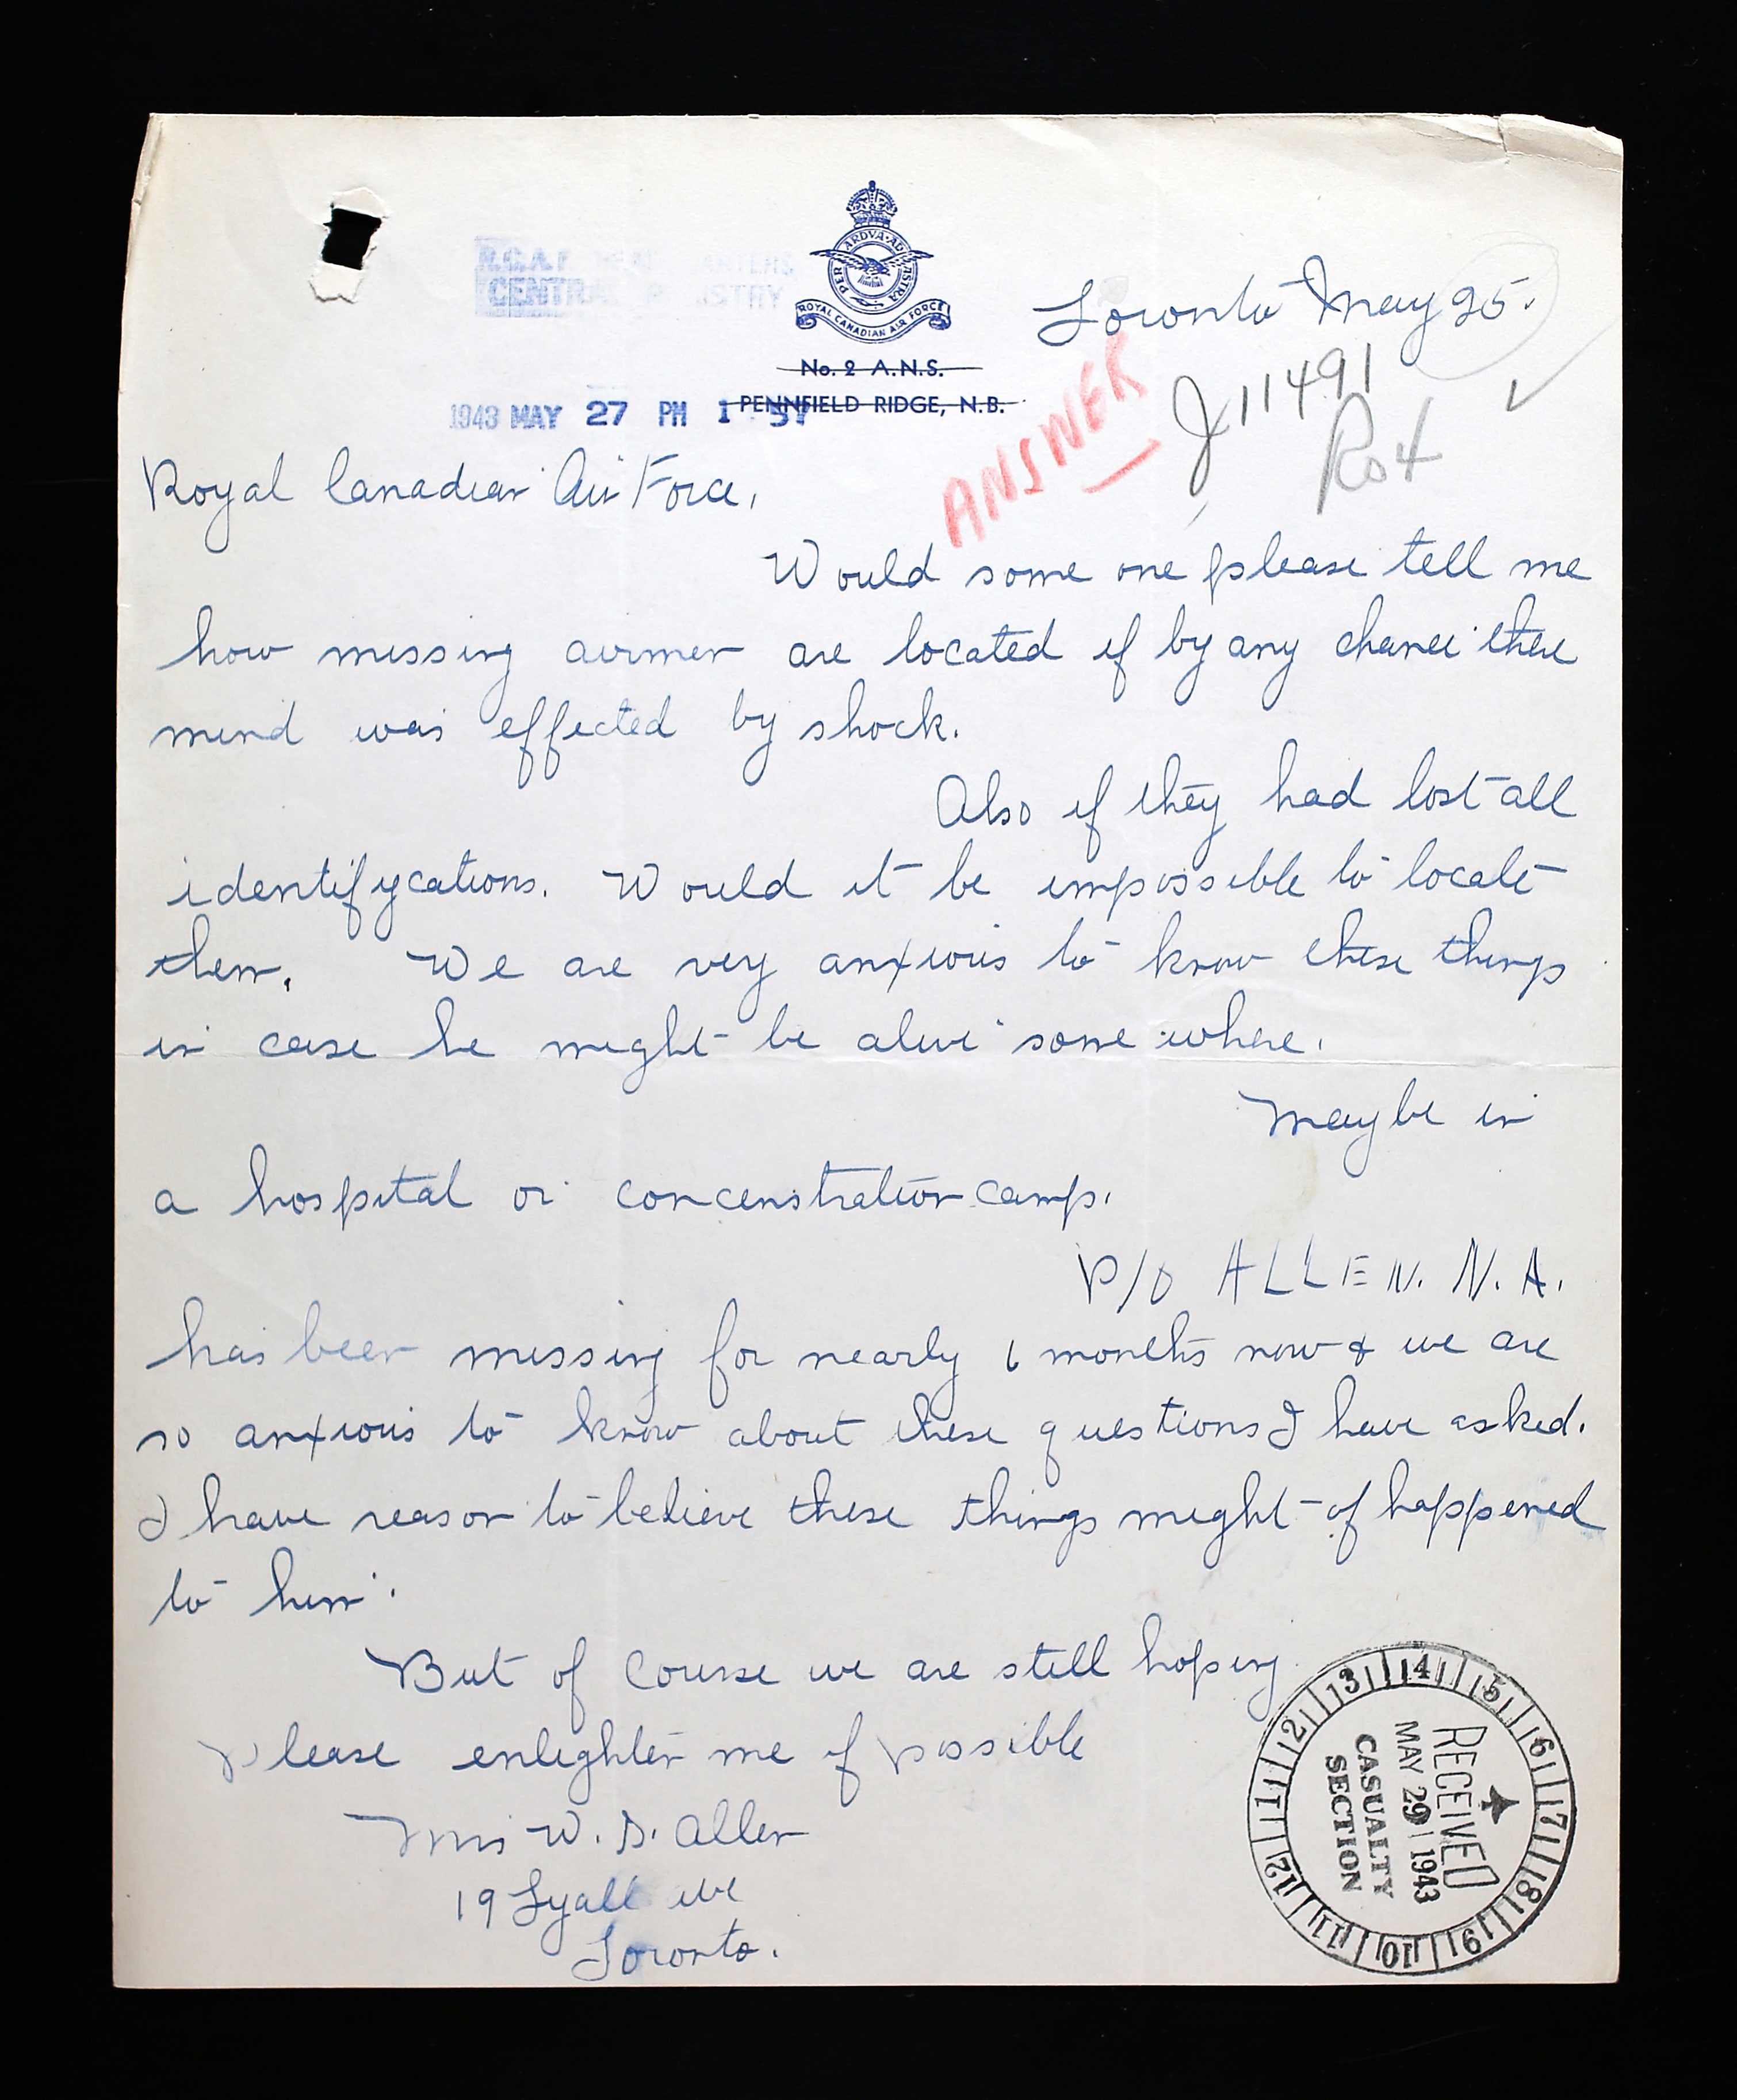 R.C.A.F. HEADQUARTERS
CENTRAL REGISTRY
PER ARDVA AD ASTRA
ROYAL CANADIAN AIR FORCE
Toronto May 25.
No. 2 A.N.S.
PENNFIELD RIDGE, N.B.
1943 MAY 27 PM 1 57
ANSWER
J11491
Ro4
Royal Canadian Air Force,
Would some one please tell me
how missing airmen are located if by any chance there
mind was effected by shock.
Also if they had lost all
identifycations. Would it be impossible to locate
them. We are very anxious to know these things
in case he might be alive some where.
Maybe in
a hospital or concenstration camp.
P/O ALLEN. N.A.
has been missing for nearly 6 months now & we are
so anxious to know about these questions I have asked.
I have reason to believe these things might of happened
to him.
But of course we are still hoping
please enlighten me if possible
Mrs W. D. Allen
19 Lyall Ave
Toronto.
1 2 3 4 5 6 7 8 9 10 11 12
RECEIVED
MAY 29 1943
CASUALTY
SECTION